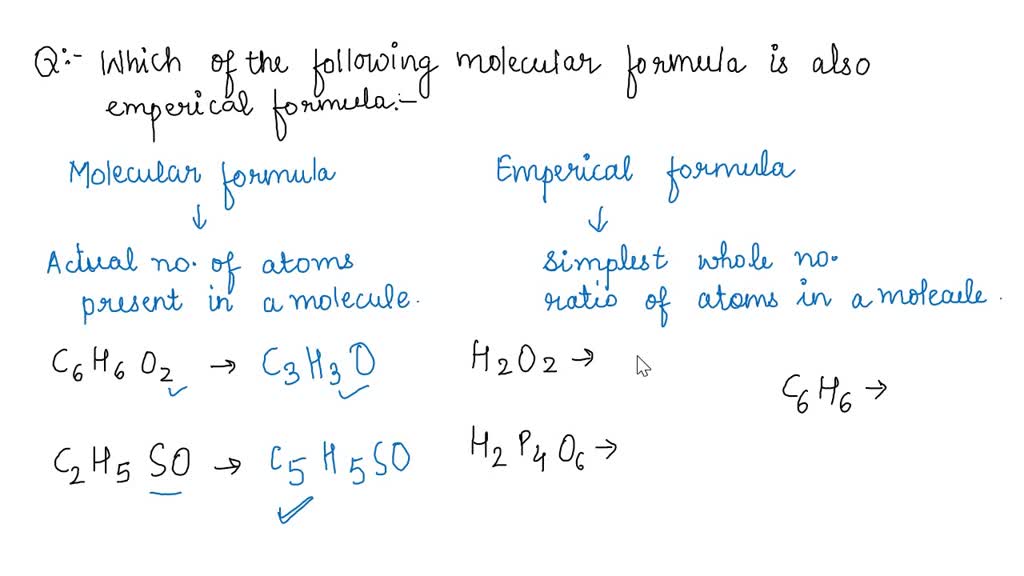 Q:- Which of the following molecular formula is also
emperical formula:-
Molecular formula
↓
Actual no. of atoms
present in a molecule.
Emperical formula
↓
simplest whole no.
ratio of atoms in a molecule.
C6H6O2 → C3H3O
C2H5SO → C5H5SO
H2O2 →
H2P4O6 →
C6H6 →